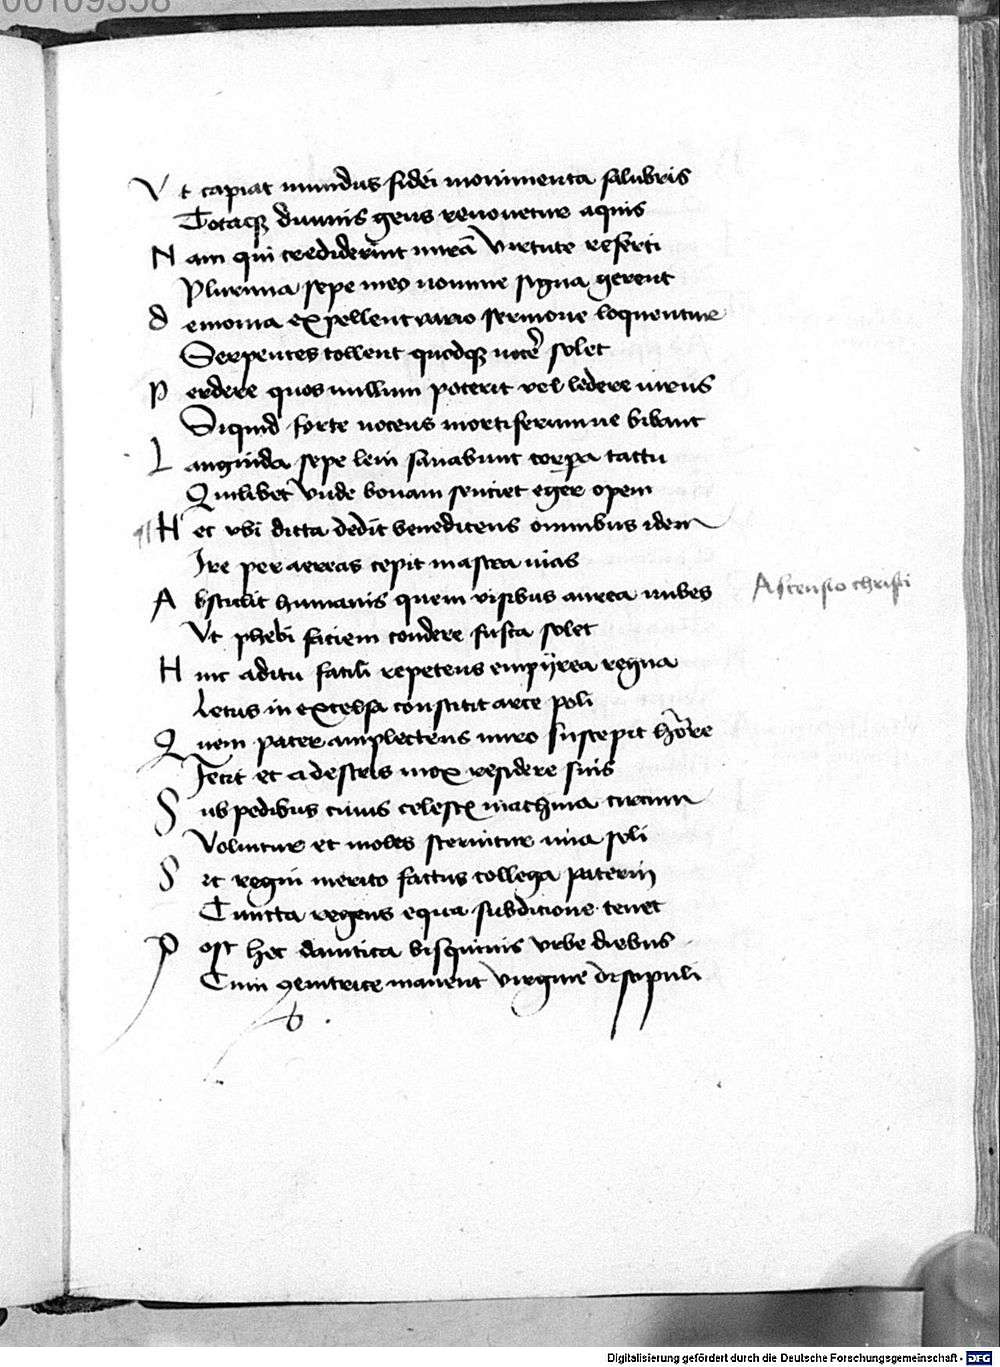 00109358
Vt capiat mundus fidei monimenta salubris
Totaqz diuinis gens renouetur aquis
Nam qui crediderint mirā virtute referti
Plurima sepe meo nomine signa gerent
demonia expellent vario sermone loquentur
Serpentes tollent quodqz nocē solet
Perdere quos nullum poterit vel ledere virus
Siquid forte nocens mortiferumue bibant
Languida sepe leui sanabunt corpa tactu
Quilibet vnde bonam sentiet eger opem
Hec vbi dicta dedit benedicens omnibus idem
Ire per aereas cepit in astra vias
Abstulit humanis quem visibus aurea nubes
Vt phebi faciem condere fusca solet
Hinc aditu facili repetens empyrea regna
Letus in excelsa constitit arce poli
Quem pater amplectens miro suscepit hōore
Iecit et a destris mox residere suis
Sub pedibus cuius celestis machina circum
Voluitur et moles sternitur ima soli
Set regni merito factus collega paterni
Cuncta regens equa subditione tenet
Post hec dauitica bisquinis vrbe diebus
Cum genitrice manent virgine discipuli
Ascensio christi
Digitalisierung gefördert durch die Deutsche Forschungsgemeinschaft - DFG